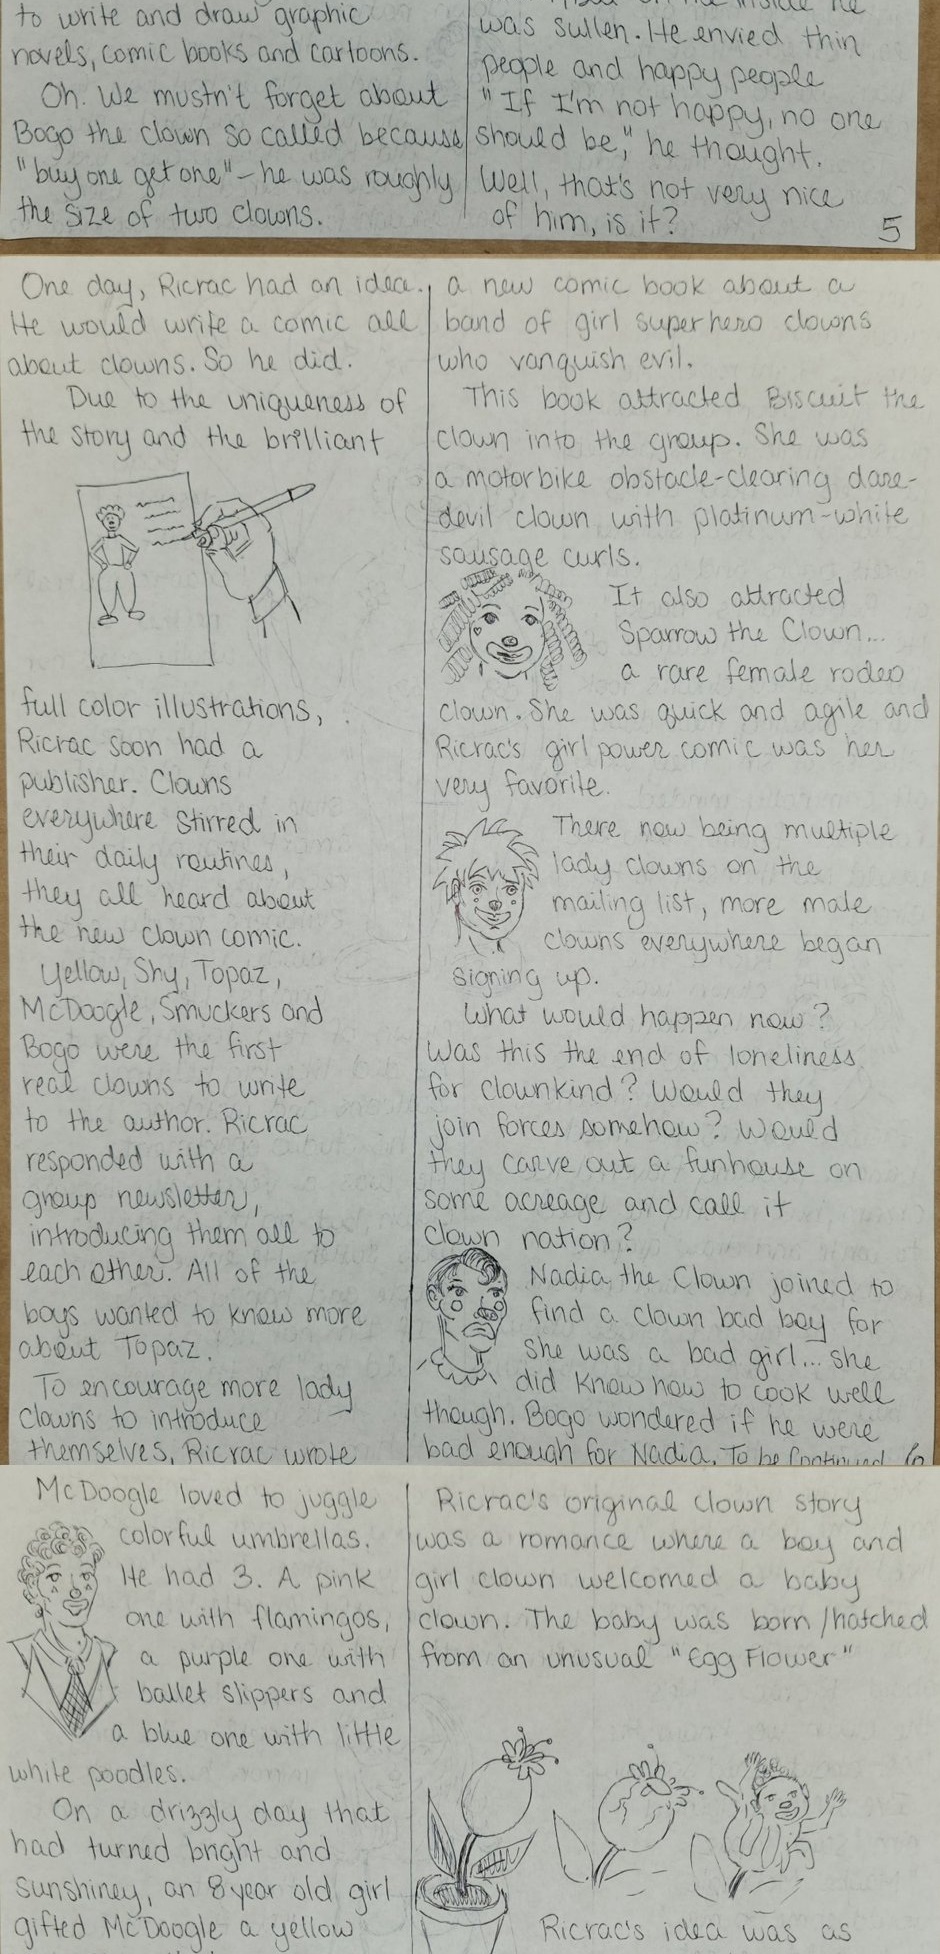 to write and draw graphic
novels, comic books and cartoons.
Oh. We mustn't forget about
Bogo the clown so called because
"buy one get one" - he was roughly
the size of two clowns.
on the inside he
was sullen. He envied thin
people and happy people
"If I'm not happy, no one
should be," he thought.
Well, that's not very nice
of him, is it?
5
One day, Ricrac had an idea.
He would write a comic all
about clowns. So he did.
Due to the uniqueness of
the story and the brilliant
full color illustrations,
Ricrac soon had a
publisher. Clowns
everywhere stirred in
their daily routines,
they all heard about
the new clown comic.
Yellow, Shy, Topaz,
McDoogle, Smuckers and
Bogo were the first
real clowns to write
to the author. Ricrac
responded with a
group newsletter,
introducing them all to
each other. All of the
boys wanted to know more
about Topaz.
To encourage more lady
clowns to introduce
themselves, Ricrac wrote
a new comic book about a
band of girl superhero clowns
who vanquish evil.
This book attracted Biscuit the
clown into the group. She was
a motorbike obstacle-clearing dare-
devil clown with platinum-white
sausage curls.
It also attracted
Sparrow the Clown...
a rare female rodeo
clown. She was quick and agile and
Ricrac's girl power comic was her
very favorite.
There now being multiple
lady clowns on the
mailing list, more male
clowns everywhere began
signing up.
What would happen now?
Was this the end of loneliness
for clownkind? Would they
join forces somehow? Would
they carve out a funhouse on
some acreage and call it
Clown nation?
Nadia the Clown joined to
find a clown bad boy for
she was a bad girl... she
did know how to cook well
though. Bogo wondered if he were
bad enough for Nadia. To be Continued 6
McDoogle loved to juggle
colorful umbrellas.
He had 3. A pink
one with flamingos,
a purple one with
ballet slippers and
a blue one with little
white poodles.
On a drizzly day that
had turned bright and
sunshiney, an 8 year old girl
gifted McDoogle a yellow
Ricrac's original clown story
was a romance where a boy and
girl clown welcomed a baby
clown. The baby was born/hatched
from an unusual "Egg Flower"
Ricrac's idea was as